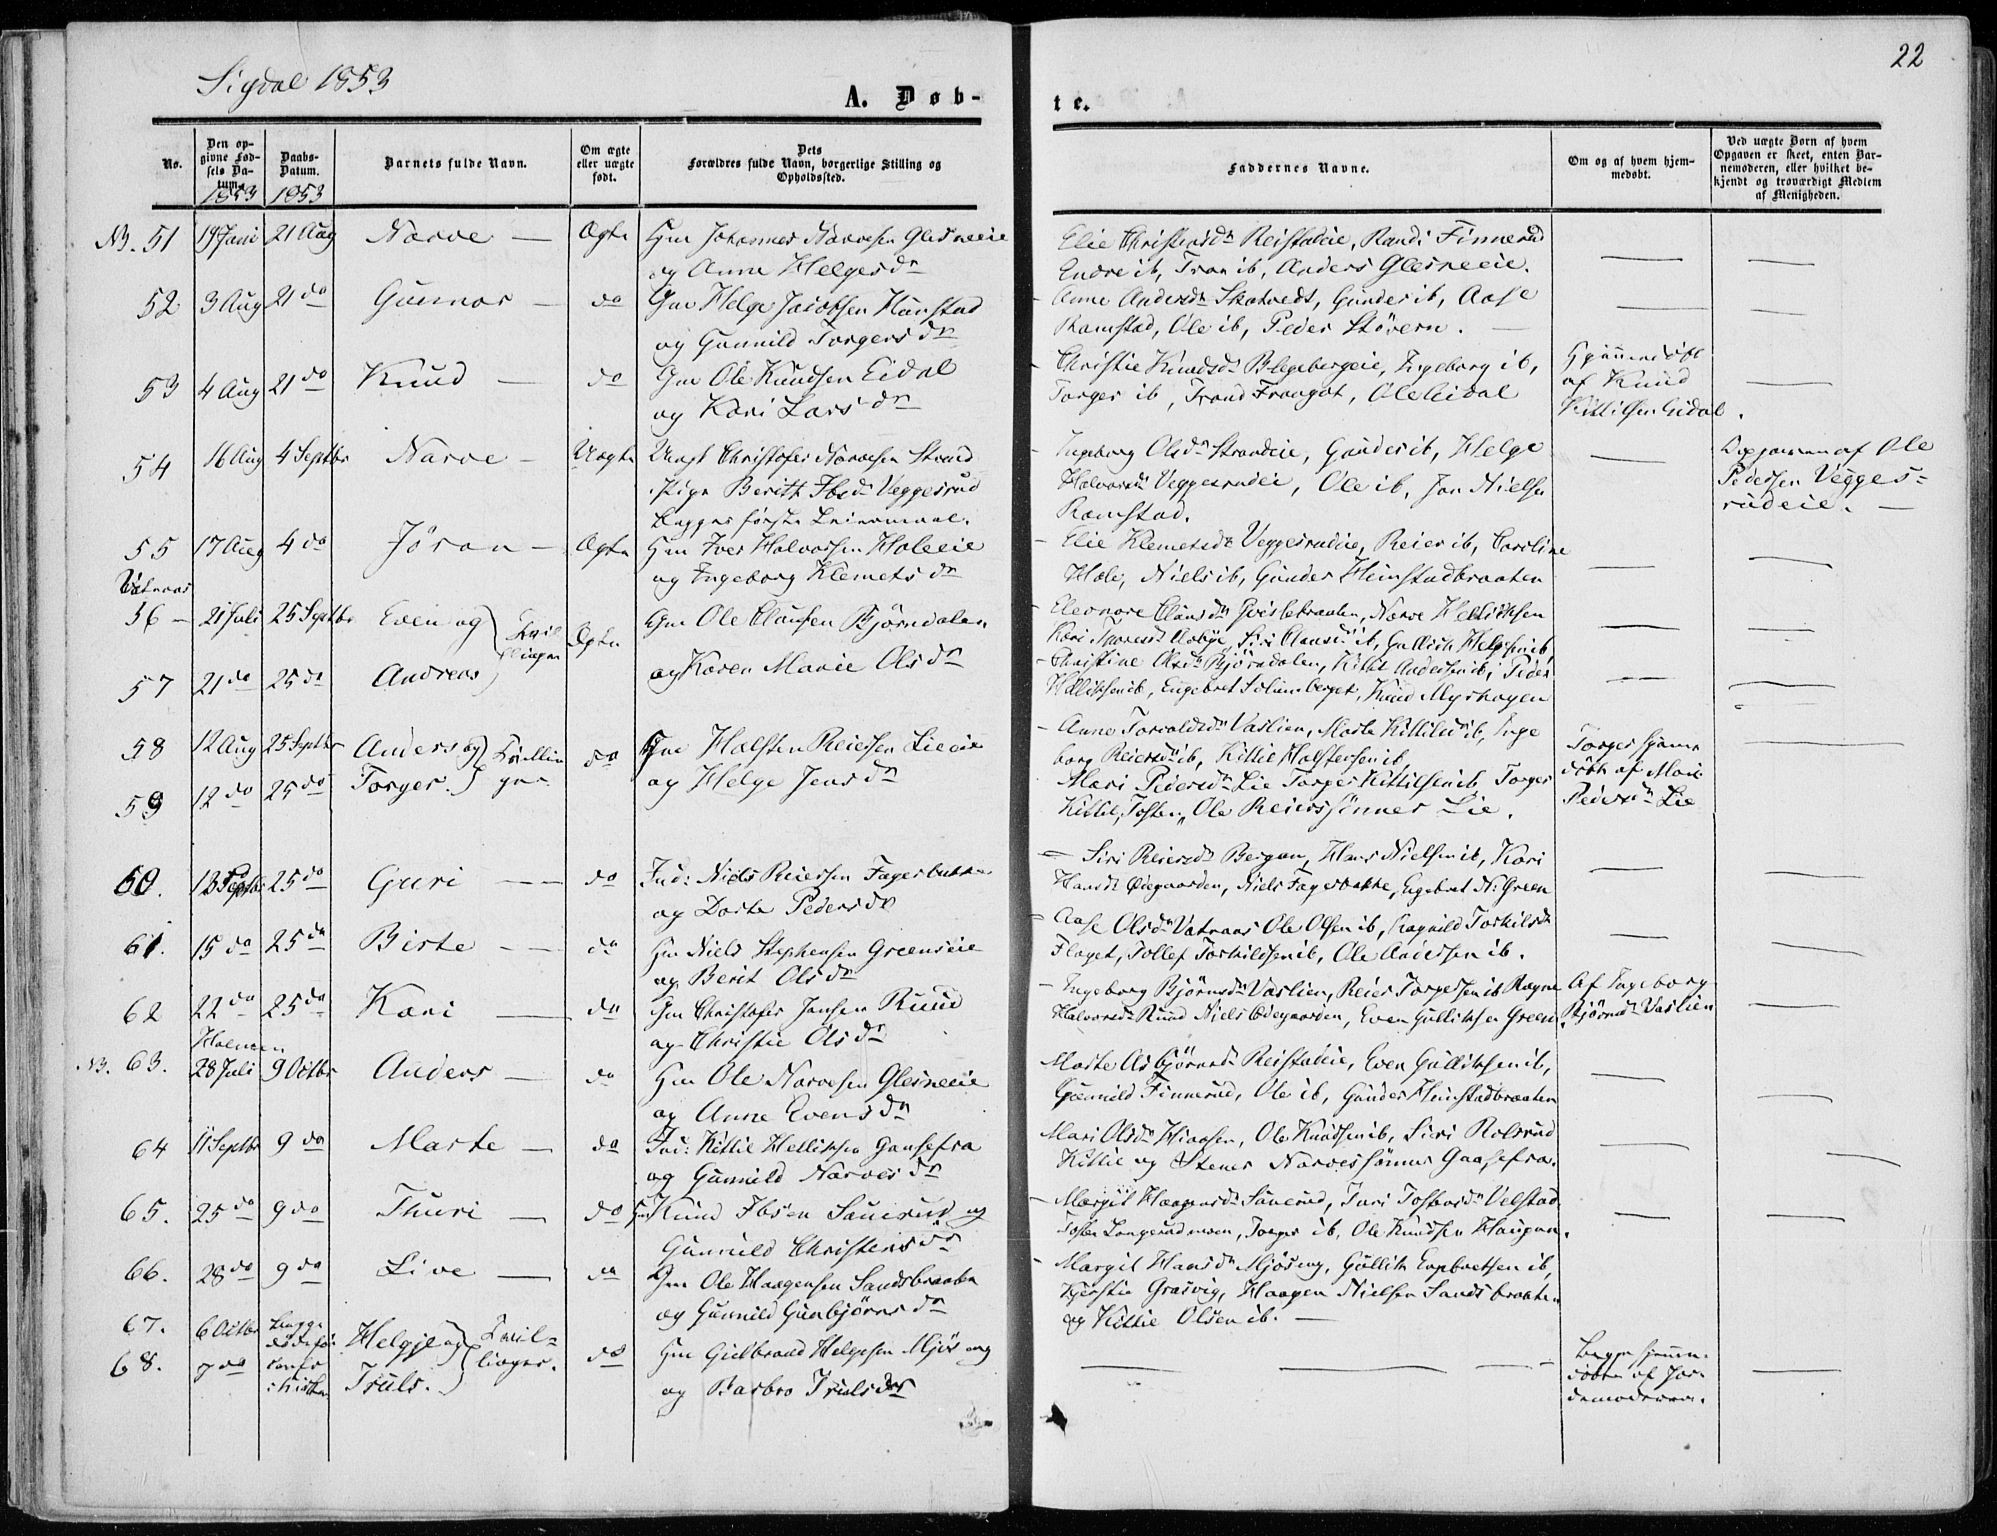 22
Sigdal 1853
A. Døb-
te.
No.
Den op-
givne Fød-
sels Da-
tum.
1853
Daabs-
Datum.
1853
Barnets fulde Navn.
Om ægte
eller uægte
født.
Dets
Forældres fulde Navn, borgerlige Stilling og
Opholdssted.
Faddernes Navne.
Om og af hvem hjem-
medøbt.
Ved uægte Børn af hvem
Opgaven er skeet, enten Bar-
nemoderen, eller hvilket be-
kjendt og troværdigt Medlem
af Menigheden.
51 19 Juni 21 Aug Narve — Ægte Hm Johannes Narvesen Glesneeie
og Anne Helgesdr
Elie Christensdr Reistadeie, Randi Finnerud
Endre ib, Tron ib, Anders Glesneeie.
52 3 Aug 21 do Gunnar — do Gm Helge Jacobsen Hunstad
og Gunnild Torgersdr
Anne Andersdr Skatvedt, Gunder ib, Aase
Ramstad, Ole ib, Peder Støvern.
53 4 Aug 21 do Knud — do Gm Ole Knudsen Eidal
og Kari Larsdr
Christie Knudsdr Blegebergeie, Ingeborg ib,
Torger ib, Trond Frangot, Ole Eidal
Hjemmedøbt
af Knud
Kittilsen Eidal.
54 16 Aug 4 Septbr Narve — Uægte Ungk Christofer Narvesen Strand
Pige Berith Ibsdr Veggesrud
Begges første Leiermaal.
Ingeborg Olsdr Strandeie, Gunder ib, Helge
Halvorsdr Veggesrudeie, Ole ib, Jon Nielsen
Ramstad.
af Ole
Pedersen Vegges-
rudeie. —
55 17 Aug 4 do Jøran — Ægte Hm Iver Halvorsen Holeeie
og Ingeborg Klemetsdr
Elie Klemetsdr Veggesrudeie, Reier ib, Caroline
Hole, Niels ib, Gunder Hunstadbraaten
Vatnaas
56 — 21 Juli 25 Septbr Even og Tvil-
linger Ægte Gm Ole Clausen Bjørndalen
57 21 do 25 do Andreas og Karen Marie Olsdr
Eleonore Clausdr Hvislebraaten, Narve Hellichsen
Kari Toresdr Aabye, Siri Clausdr ib, Gullich Helgesen ib,
Christine Olsdr Bjørndalen, Kittil Andersen ib, Peder
Hellichsen ib, Engebret Solumsberget, Knud Myrhagen
58 12 Aug 25 Septbr Anders og Tvillin
ger do Gm Halsten Reiersen Lieeie
59 12 do 25 do Torger. og Helge Jensdr
Anne Torvaldsdr Vaslien, Marte Kittilsdr ib, Inge
borg Reiersdr ib, Kittil Halstensen ib,
Mari Pedersdr Lie Torger Kittilsen ib, Torger
Kittil, Tosten, Ole Reierssønner Lie.
Torger hjemme
døbt af Mari
Pedersdr Lie
60. 13 Septbr 25 do Guri — do Ind: Niels Reiersen Fagerbakke
og Dorte Pedersdr
Siri Reiersdr Bergan, Hans Nielsen ib, Kari
Hansdr Ødegaarden, Niels Fagerbakke, Engebret N: Green
61. 15 do 25 do Birte — do Hm Niels Stephensen Greenseie
og Berit Olsdr
Aase Olsdr Vatnaas Ole Olsen ib, Ragnild Torkilsdr
Flaget, Tollef Torkildsen ib, Ole Andersen ib.
62 22 do 25 do Kari — do Gm Christofer Jansen Ruud
og Christie Olsdr
Ingeborg Bjørnsdr Vaslien, Reier Torgersen ib Ragne
Halvorsdr Ruud Niels Ødegaarden, Even Gulliksen Green
Af Ingeborg
Bjørnsdr Vaslien
Holmen
63. 28 Juli 9 Octbr Anders — do Hm Ole Narvesen Glesneeie
og Anne Evensdr
Marte Asbjørnsdr Reistadeie, Even Gulliksen ib,
Gunnild Finnerud, Ole ib, Gunder Hunstadbraaten
64 11 Septbr 9 do Marte — do Ind: Kittil Hellichsen Gaasefra
og Gunnild Narvesdr
Mari Olsdr Hiaasen, Ole Knudsen ib, Siri Rolsrud
Kittil og Stener Narvessønner Gaasefra.
65. 25 do 9 do Thuri — do Knud Ibsen Saurud og
Gunnild Christensdr
Margit Haagensdr Saurud, Turi Tostensdr Velstad
Tosten Langerudmoen, Torger ib, Ole Knudsen Haugan.
66. 28 do 9 do Live — do Gm Ole Haagensen Sandsbraaten
og Gunnild Gunbjørnsdr
Margit Hansdr Mjøseng, Gullik Engebretsen ib,
Kjerstie Grasvig, Haagen Nielsen Sandsbraaten
og Kittil Olsen ib. —
67. 6 Octbr Begge
døde før Helgje og Tvil-
68. 7 do Truls. linger. do Hm Gulbrand Helgesen Mjøseng
og Barbro Trulsdr
Begge hjemme-
døbte af Jor-
demoderen.